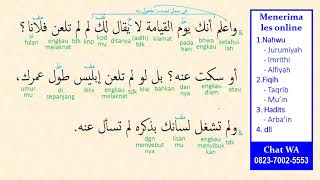 في محل نصب، مفعول به
واعلم أنك يوم القيامة لا يقال لك: لم لم تلعن فلانا؟
ketahui lah bhwa engkau pada hari kiamat (adlh) tdk ditanya kpd mu knp tdk engkau melaknat fulan
أو سكت عنه؟ بل لو لم تلعن إبليس طول عمرك،
tdk engkau melaknat di sepanjang umur mu
ولم تشغل لسانك بذكره لم تسأل عنه.
tdk engkau menyibuk kan lisan mu dgn menyebut nya
Menerima
les online
1.Nahwu
- Jurumiyah
- Imrithi
- Alfiyah
2.Fiqih
- Taqrib
- Mu'in
3.Hadits
- Arba'in
4. dll
Chat WA
0823-7002-5553